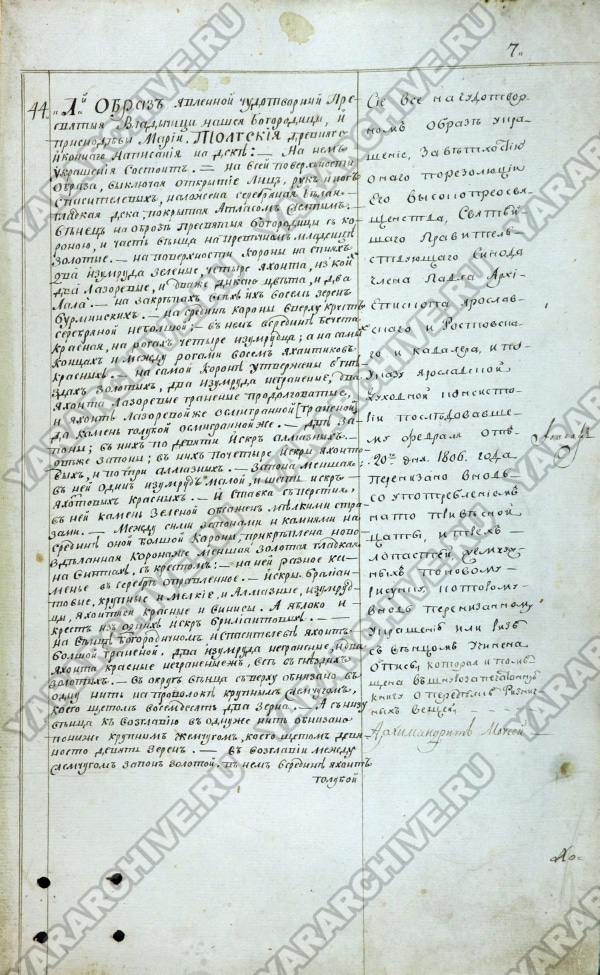 7.
44. „1й ОБРАЗЪ явленной чудотворный Пре-
святыя Владычицы нашея Богородицы, и
приснодѣвы Марiи, ТОЛГСКIЯ древняго
иконнаго написанiя на дскѣ: — На немъ
украшенiя состоитъ. — на всей поверхности
Образа, выключая открытiе лицъ, рукъ и ногъ
Спасителевыхъ, наложена серебряная бѣлая
гладкая дска, покрытая Атласомъ желтымъ.
вѣнецъ на образѣ Пресвятыя Богородицы съ ко-
роною, и часть вѣнца на предвѣчномъ младенцѣ
золотые. — на поверхности короны на спняхъ
два изумруда зеленые, четыре яхонта, изъ коихъ
два лазоревые, и дваже дикаго цвѣта, и два
Лала. — на закрѣпахъ всѣхъ ихъ восемь зеренъ
бурмицкихъ. — на средине короны вверху крестъ
серебряной небольшой; — въ немъ всрединѣ бечета
красная, на рогахъ четыре изумрудца; а на самыхъ
концахъ и между рогами восемь яхонтиковъ
красныхъ — на самой коронѣ утвержены въ гнѣз-
дахъ золотыхъ, два изумруда неграненые, два
яхонта лазоревые граненые продолговатые,
и яхонтъ лазоревой же осмигранной [граненой]
да камень голубой осмигранной же. — Двѣ за-
поны; въ нихъ по девяти искръ алмазныхъ. —
Двѣ же запоны; въ нихъ по четыре искры яхонто-
выхъ, и по три алмазныхъ. — Запона меншая;
въ ней одинъ изумрудъ малой, и шесть искръ
яхонтовыхъ красныхъ. — И вставка съ перстня,
въ ней камень зеленой обсаженъ мѣлкими стра-
зами. — Между сими запонами и камнями на
срединѣ оной большой короны, прикрѣплена ново-
здѣланная корона же меншая золотая гладкая
на винтахъ, съ крестомъ: — на ней разное ка-
менье въ серебрѣ оправленное. — искры брилiан-
товые, крупные и мелкiе, и Алмазные, изумруд-
цы, яхонтики красные и синiе. А яблоко и
крестъ изъ однихъ искръ брилiантовыхъ. —
на вѣнцѣ Богородичномъ и спасителевѣ яхонтъ
большой граненой. два изумруда неграненые, и два
яхонта красные неграненыежъ, всѣ въ гнѣздахъ
золотыхъ. — Въ округъ вѣнца сверху обнизано въ
одну нить на проволокѣ крупнымъ жемчугомъ,
коего щетомъ восемьдесятъ два зерна. — А снизу
вѣнца къ возглавiю въ одну же нить обнизано
пониже крупнымъ жемчугомъ, коего щетомъ девя-
носто девять зеренъ. — въ возглавiи между
жемчугомъ запонъ золотой. въ немъ всрединѣ яхонтъ
голубой
Сiе все на чудотвор-
номъ образѣ укра-
шенiе, за вѣтхостiю
онаго по резолюцiи
Его Высокопреосвя-
щенства, Святѣй-
шаго Правитель-
ствующаго Синода
члена Павла Архi-
епископа Ярослав-
скаго и Ростовска-
го и кавалера, и по
указу Ярославской
духовной консисто-
рiи послѣдовавше-
му февраля отъ
20го дня 1806. года
перенизано вновь
со употребленiемъ
на то
цаты,
жемчуж-
ныхъ по новому
рисунку, по которому
вновь перенизанному
украшенiю или ризѣ
съ вѣнцомъ учинена
опись, которая и помѣ-
щена въ
книгу о передѣлкѣ разни-
чныхъ вещей.
Архимандритъ Моvсей